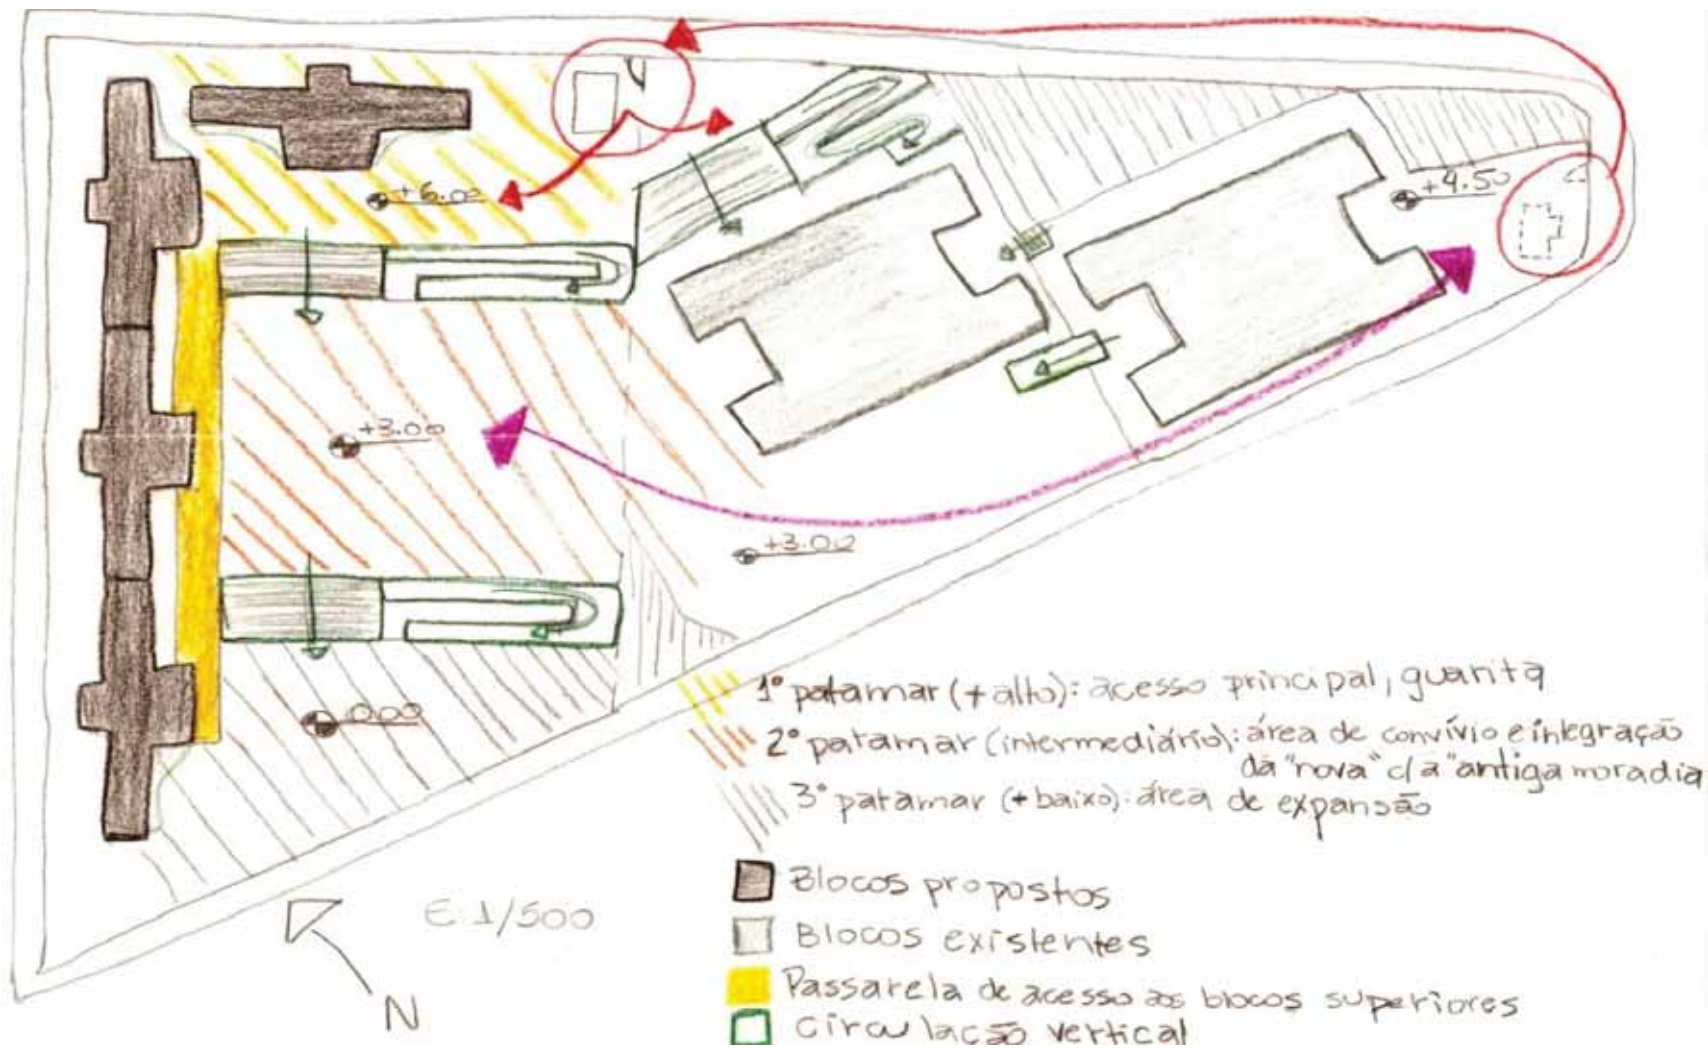 +6.00
+4.50
+3.00
+3.00
0.00
1º patamar (+ alto): acesso principal, guarita
2º patamar (intermediário): área de convívio e integração
da "nova" c/ a "antiga moradia
3º patamar (+ baixo): área de expansão
Blocos propostos
Blocos existentes
Passarela de acesso aos blocos superiores
Circulação vertical
E: 1/500
N